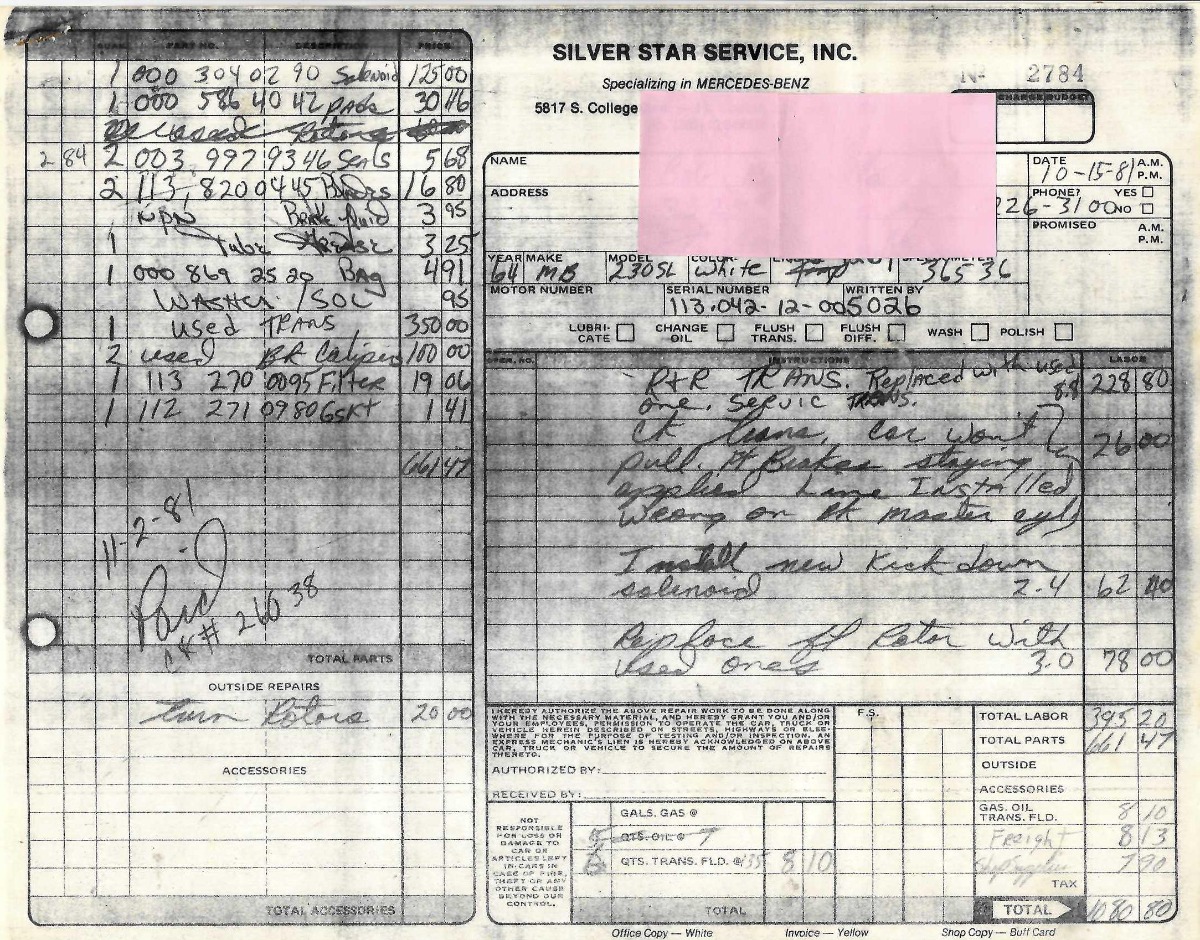 SILVER STAR SERVICE, INC.
Specializing in MERCEDES-BENZ
5817 S. College
Nº 2784
CHARGE BUDGET
QUAN. PART NO. DESCRIPTION PRICE
1 000 304 02 90 Solenoid 125 00
1 000 586 40 42 pads 30 46
used Rotors
2 84 2 003 997 93 46 Seals 5 68
2 113-820 04 45 16 80
NPN Brake fluid 3 95
1 Tube Grease 3 25
1 000 869 25 20 Bag 4 91
Washer / Sol 95
1 used TRANS 350 00
2 used BR Caliper 100 00
1 113 270 00 95 Filter 19 06
1 112 271 09 80 Gskt 1 41
661 47
11-2-81
Paid
CK# 26038
TOTAL PARTS
OUTSIDE REPAIRS
turn Rotors 20 00
ACCESSORIES
TOTAL ACCESSORIES
NAME
DATE 10-15-81 A.M. P.M.
ADDRESS
PHONE? YES NO
226-3100
PROMISED A.M. P.M.
YEAR MAKE MODEL COLOR
64 MB 230SL White 36536
MOTOR NUMBER SERIAL NUMBER WRITTEN BY
113-042-12-005026
LUBRI-CATE CHANGE OIL FLUSH TRANS. FLUSH DIFF. WASH POLISH
OPER. NO. INSTRUCTIONS LABOR
R+R TRANS. Replaced with used 8.8 228 80
one. Servic TRANS.
Ck trans, car won't 26 00
pull. Ft Brakes staying
applied Line Installed
wrong on Bk master cyl
Install new Kick down
solenoid 2.4 62 40
Replace ft Rotor with
used ones 3.0 78 00
I HEREBY AUTHORIZE THE ABOVE REPAIR WORK TO BE DONE ALONG
WITH THE NECESSARY MATERIAL, AND HEREBY GRANT YOU AND/OR
YOUR EMPLOYEES, PERMISSION TO OPERATE THE CAR, TRUCK OR
VEHICLE HEREIN DESCRIBED ON STREETS, HIGHWAYS OR ELSE-
WHERE FOR THE PURPOSE OF TESTING AND/OR INSPECTION. AN
EXPRESS MECHANIC'S LIEN IS HEREBY ACKNOWLEDGED ON ABOVE
CAR, TRUCK OR VEHICLE TO SECURE THE AMOUNT OF REPAIRS
THERETO.
AUTHORIZED BY:
RECEIVED BY:
F.S.
TOTAL LABOR 395 20
TOTAL PARTS 661 47
OUTSIDE
ACCESSORIES
GAS. OIL TRANS. FLD. 8 10
Freight 8 13
Shop Supplies 7 90
TAX
TOTAL 1080 80
NOT
RESPONSIBLE
FOR LOSS OR
DAMAGE TO
CAR OR
ARTICLES LEFT
IN CARS IN
CASE OF FIRE,
THEFT OR ANY
OTHER CAUSE
BEYOND OUR
CONTROL.
GALS. GAS @
QTS. OIL @
6 QTS. TRANS. FLD. @ 135 8 10
TOTAL
Office Copy — White Invoice — Yellow Shop Copy — Buff Card